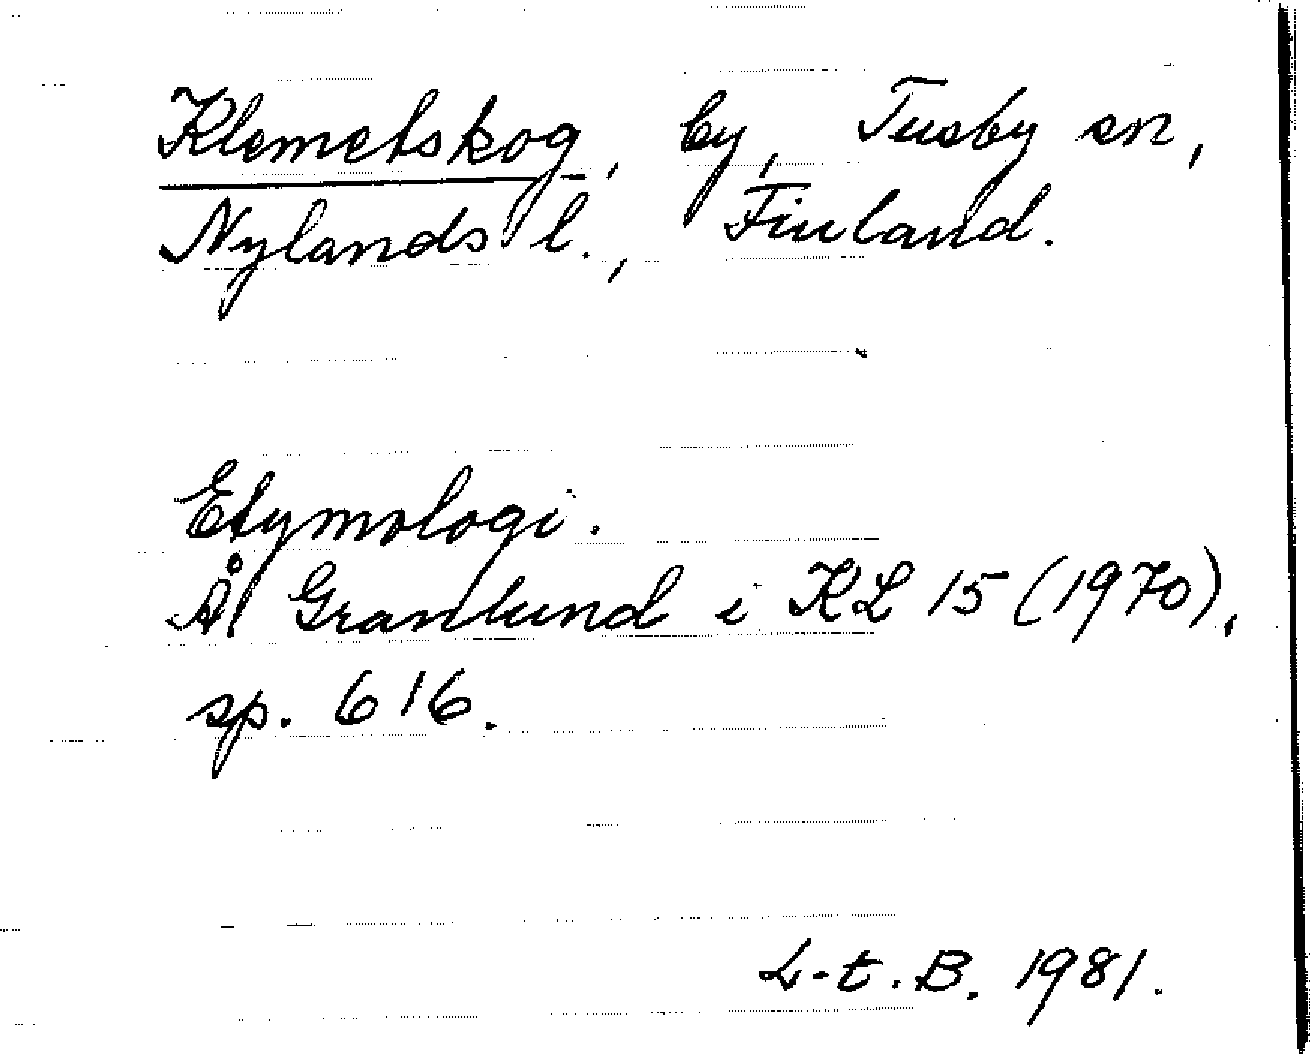 Klemetskog, by, Tusby sn,
Nylands l., Finland.
Etymologi.
Å Granlund i KL 15 (1970),
sp. 616.
L-t. B. 1981.